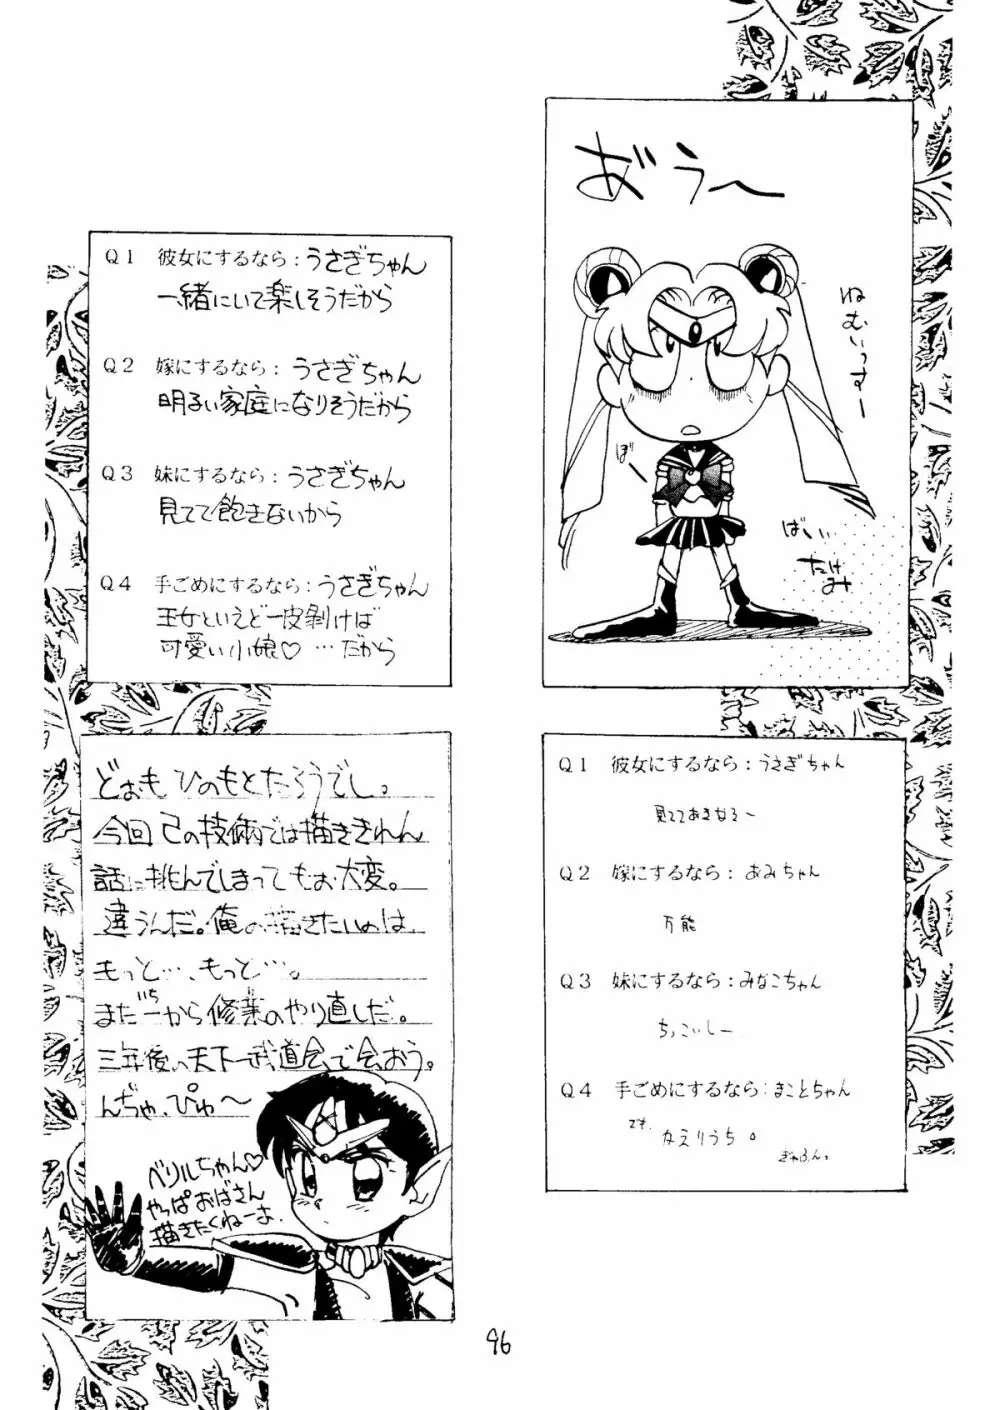 おう〜
ねむいっすー
ぼー
ばい
たけみ
Q1 彼女にするなら：うさぎちゃん
一緒にいて楽しそうだから
Q2 嫁にするなら：うさぎちゃん
明るい家庭になりそうだから
Q3 妹にするなら：うさぎちゃん
見てて飽きないから
Q4 手ごめにするなら：うさぎちゃん
王女といえど一皮剥けば
可愛い小娘♡…だから
どおも ひのもとたろうでし。
今回己の技術では描ききれん
話に挑んでしまってもお大変。
違うんだ。俺の描きたいのは、
もっと…、もっと…。
また一から修業のやり直しだ。
三年後の天下一武道会で会おう。
んぢゃ、ぴゅ〜
ベリルちゃん♡
やっぱおばさん
描きたくねーよ.
Q1 彼女にするなら：うさぎちゃん
見ててあきなそ〜
Q2 嫁にするなら：あみちゃん
万能
Q3 妹にするなら：みなこちゃん
ちっこいしー
Q4 手ごめにするなら：まことちゃん
です、
かえりうち。
ぎゃふんっ
96